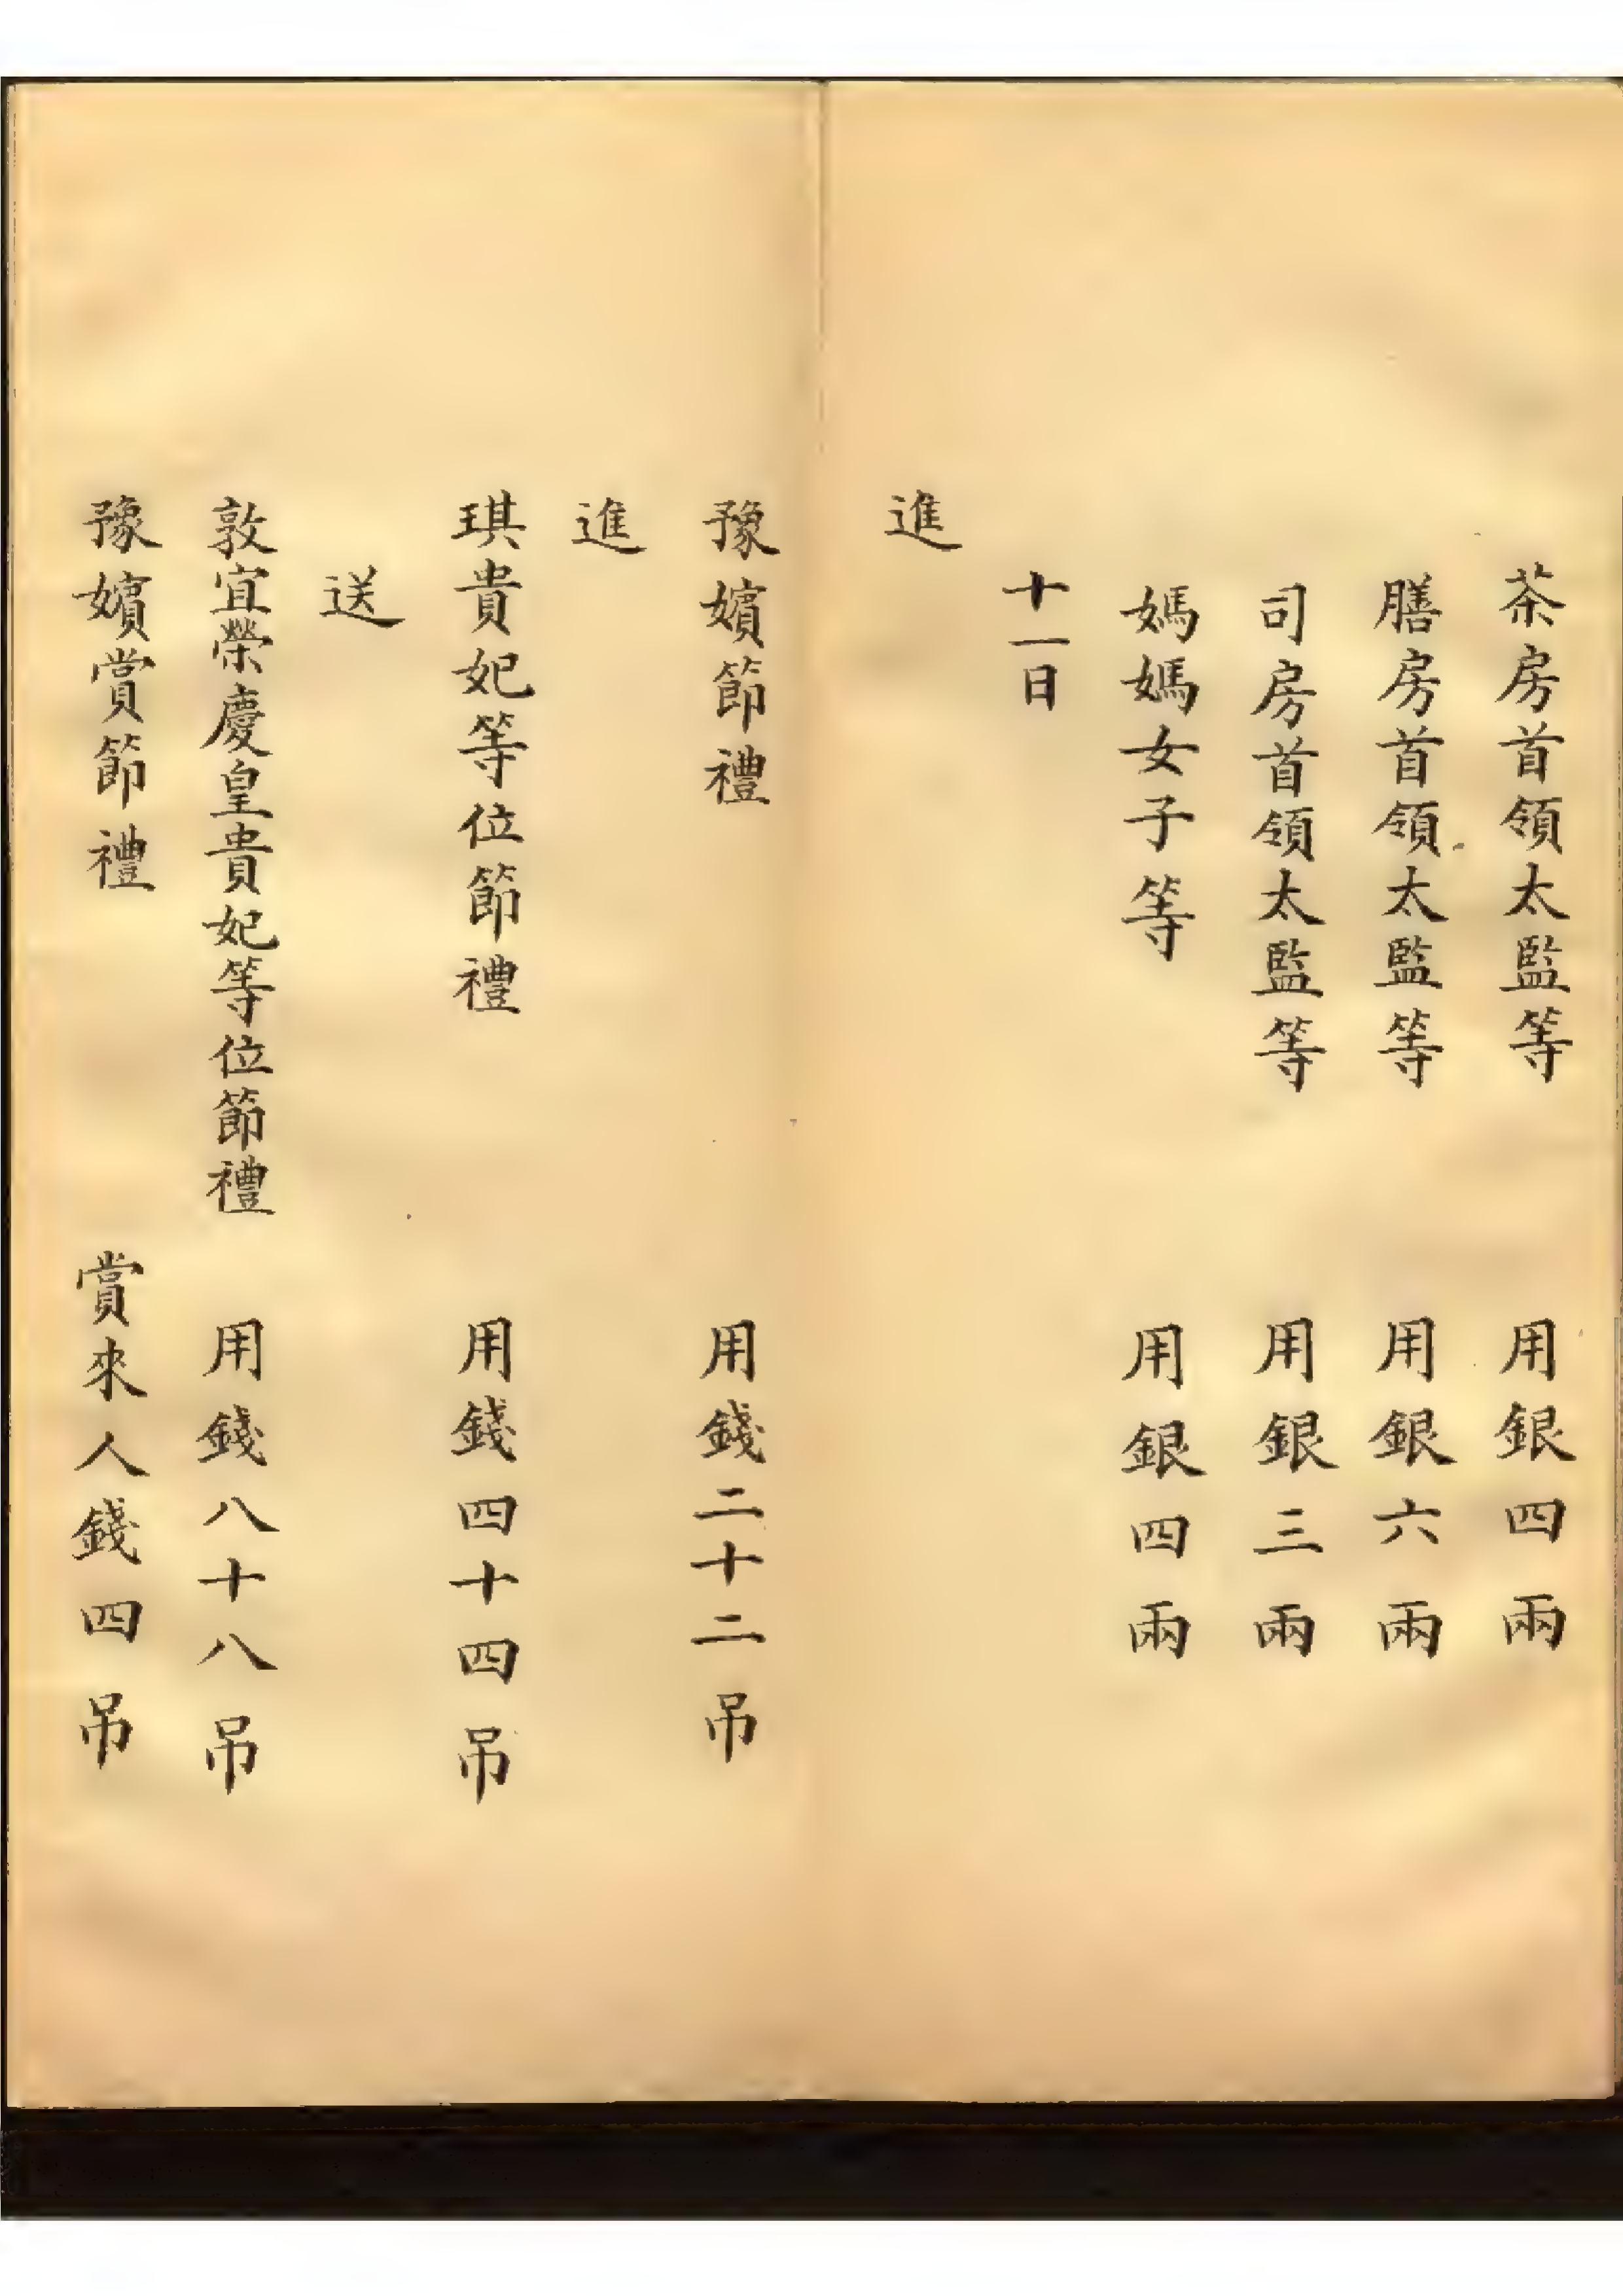 茶房首領太監等　用銀四兩
膳房首領太監等　用銀六兩
司房首領太監等　用銀三兩
媽媽女子等　用銀四兩
十一日
進
豫嬪節禮　用錢二十二吊
進
琪貴妃等位節禮　用錢四十四吊
送
敦宜榮慶皇貴妃等位節禮　用錢八十八吊
豫嬪賞節禮　賞來人錢四吊